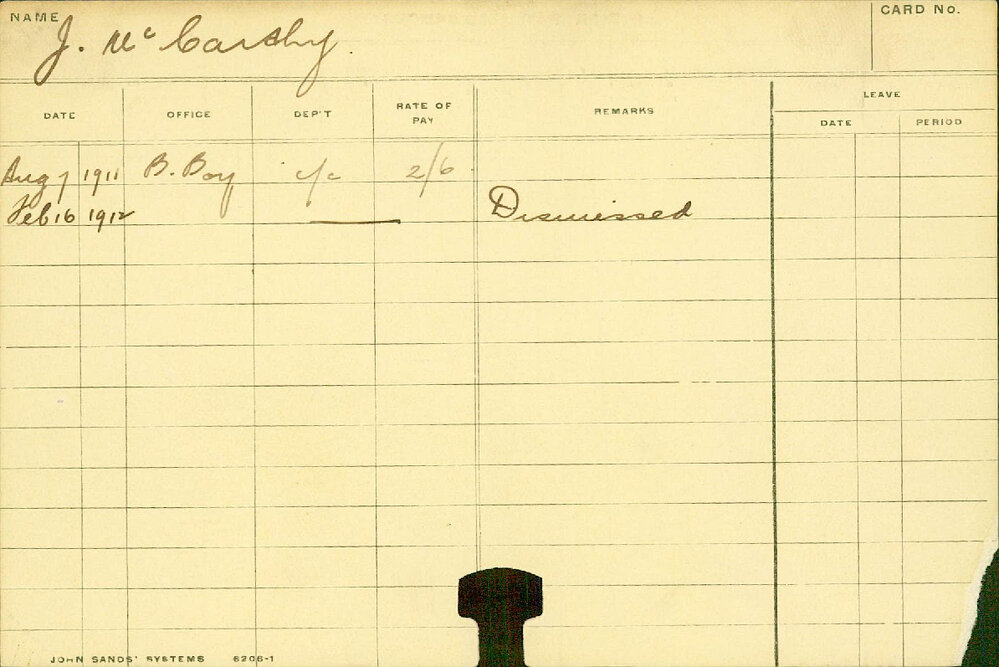 NAME J. McCarthy. CARD No.
DATE OFFICE DEP'T RATE OF PAY REMARKS LEAVE
DATE PERIOD
Aug 7 1911 B. Boy c/c 2/6
Feb 16 1912 Dismissed
JOHN SANDS' SYSTEMS 6206-1